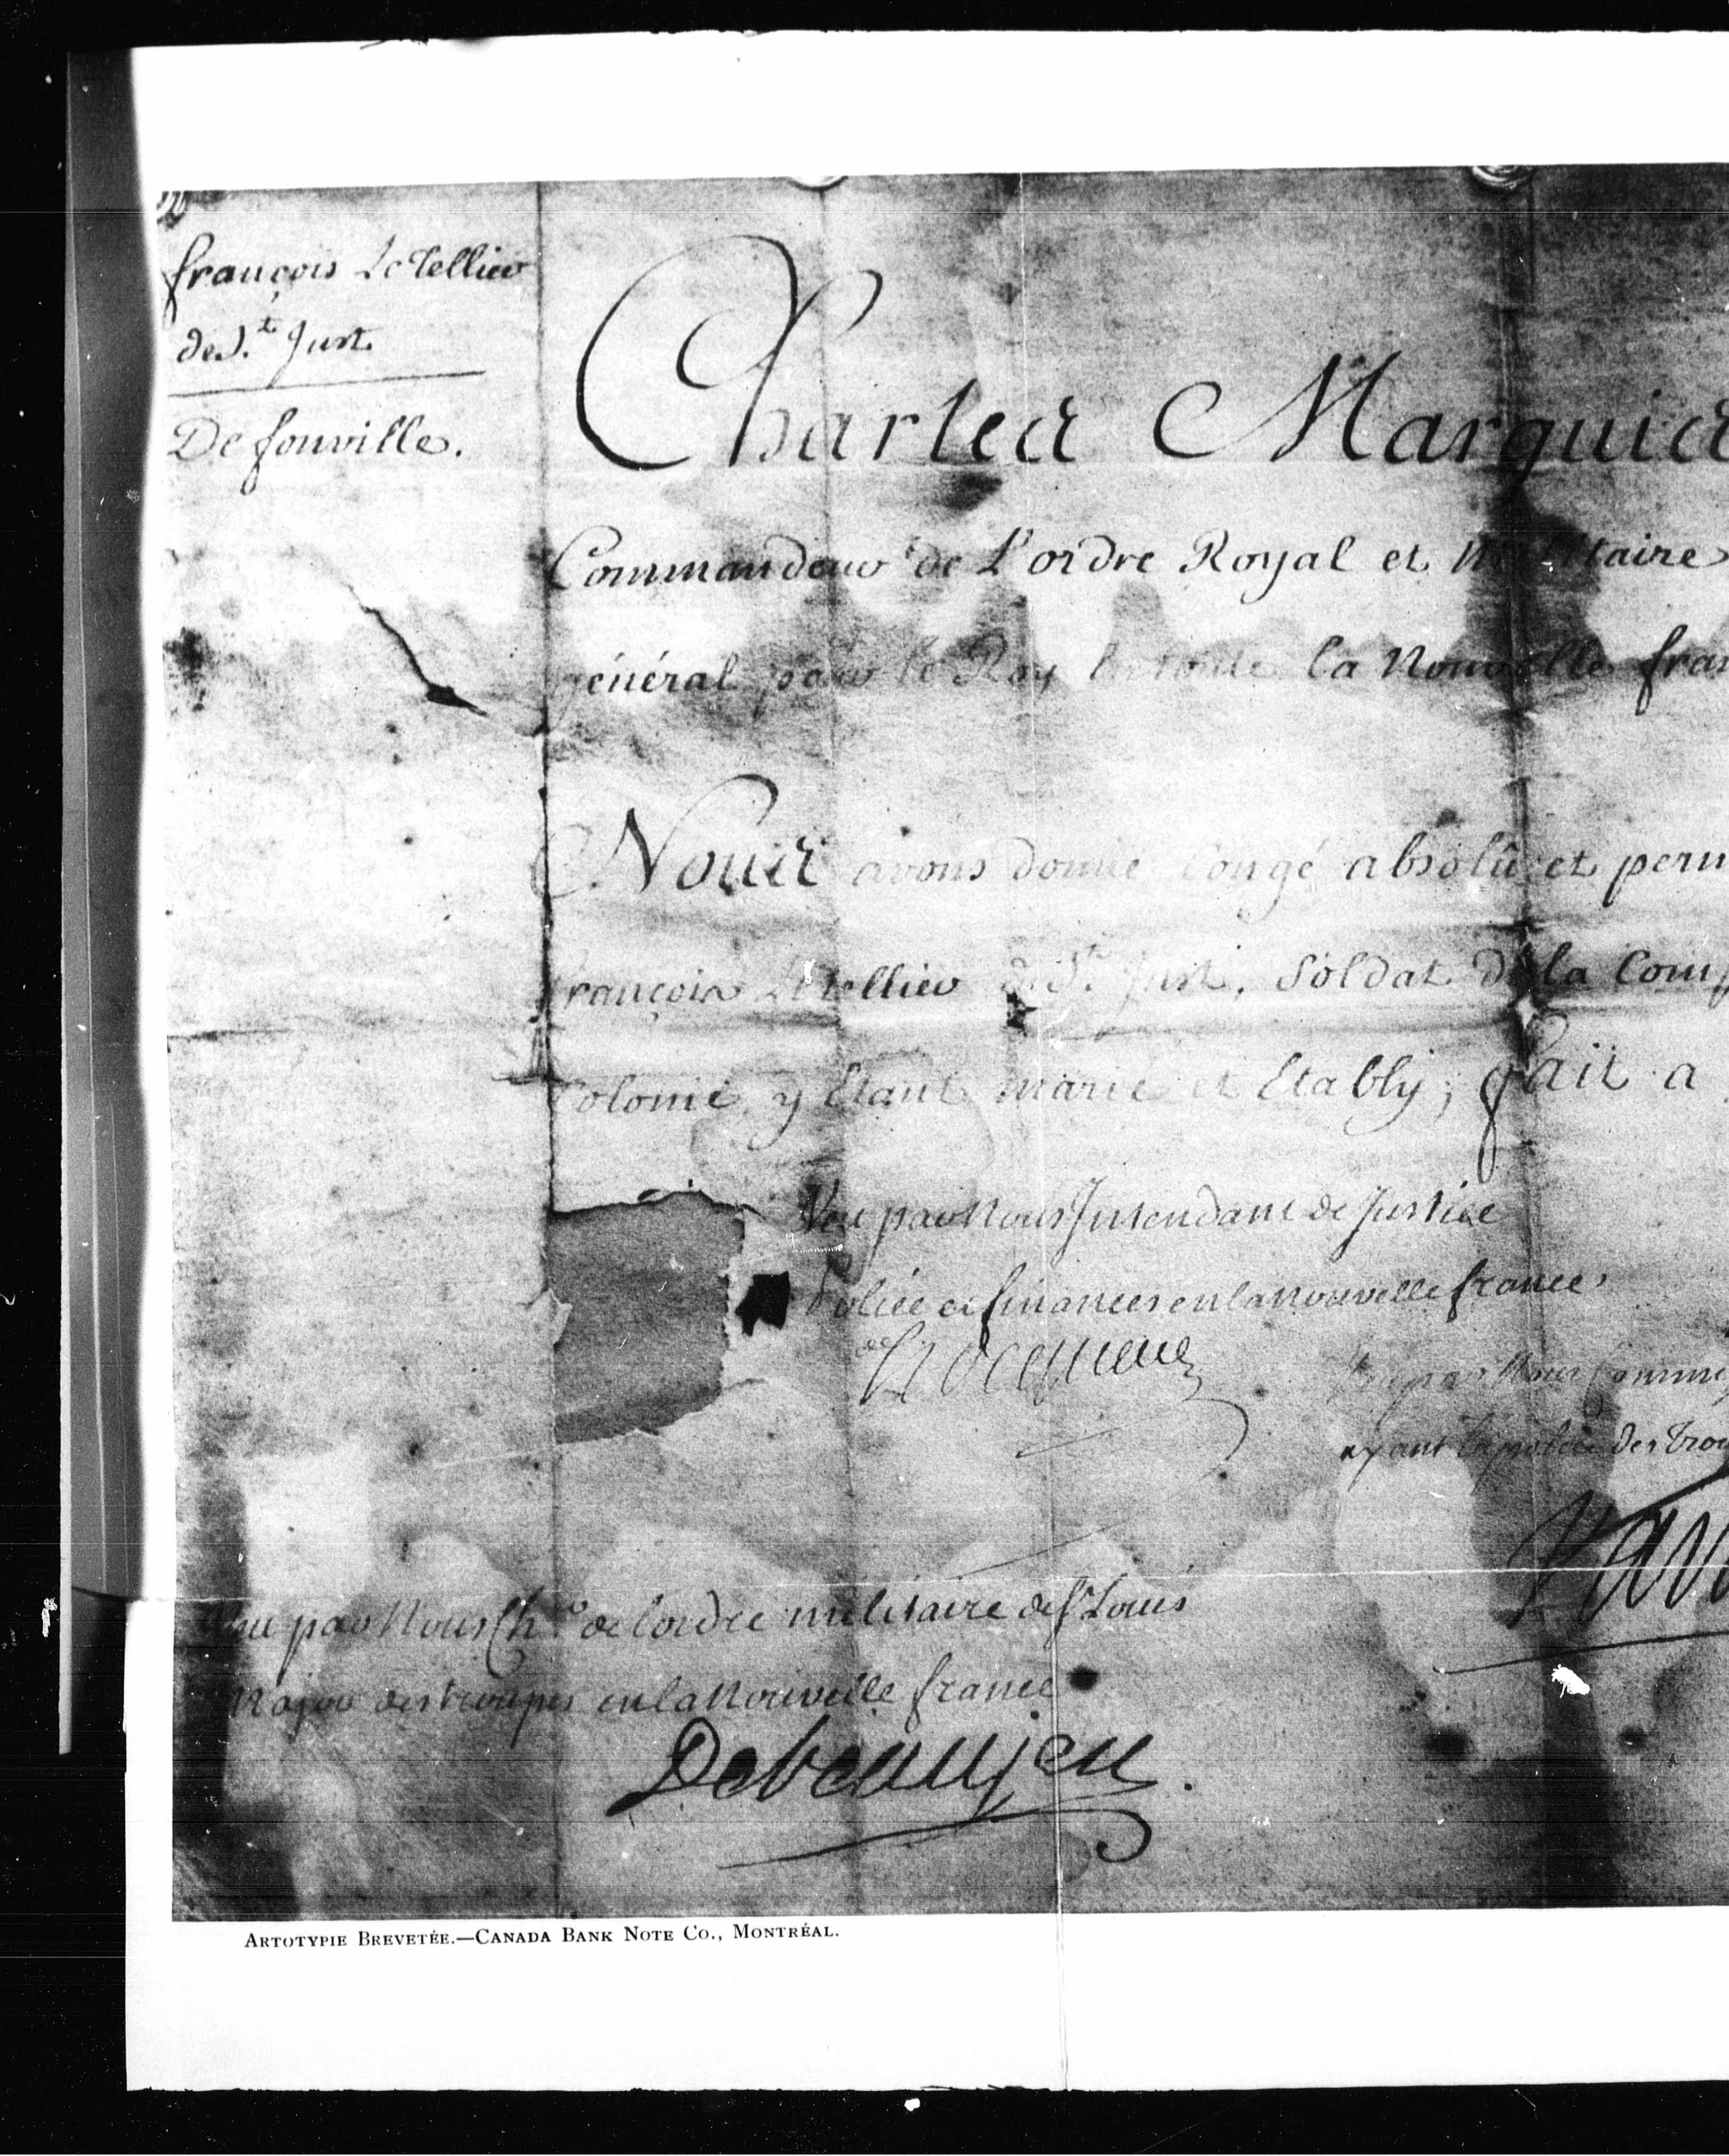 françois LeTellier
de S.t Just
De fonville.
Charles Marquis
Commandeur de L'ordre Royal et Militaire
général pour le Roy la Nouvelle fran
Nous avons donné Congé absolû et perm
françois Letellier de S.t Just, Soldat de la Comp
Colonie y Etant marié et Etably; fait a
Veu par Nous Intendant de Justice
Police et finances en la nouvelle france
Hocquart
Veu par Nous Comm
ayant la police des Trou
Var
Veu par Nous Ch.er de lordre militaire de St Louis
Major des troupes en la Nouvelle france
Debeaujeu.
ARTOTYPIE BREVETÉE.—CANADA BANK NOTE CO., MONTRÉAL.